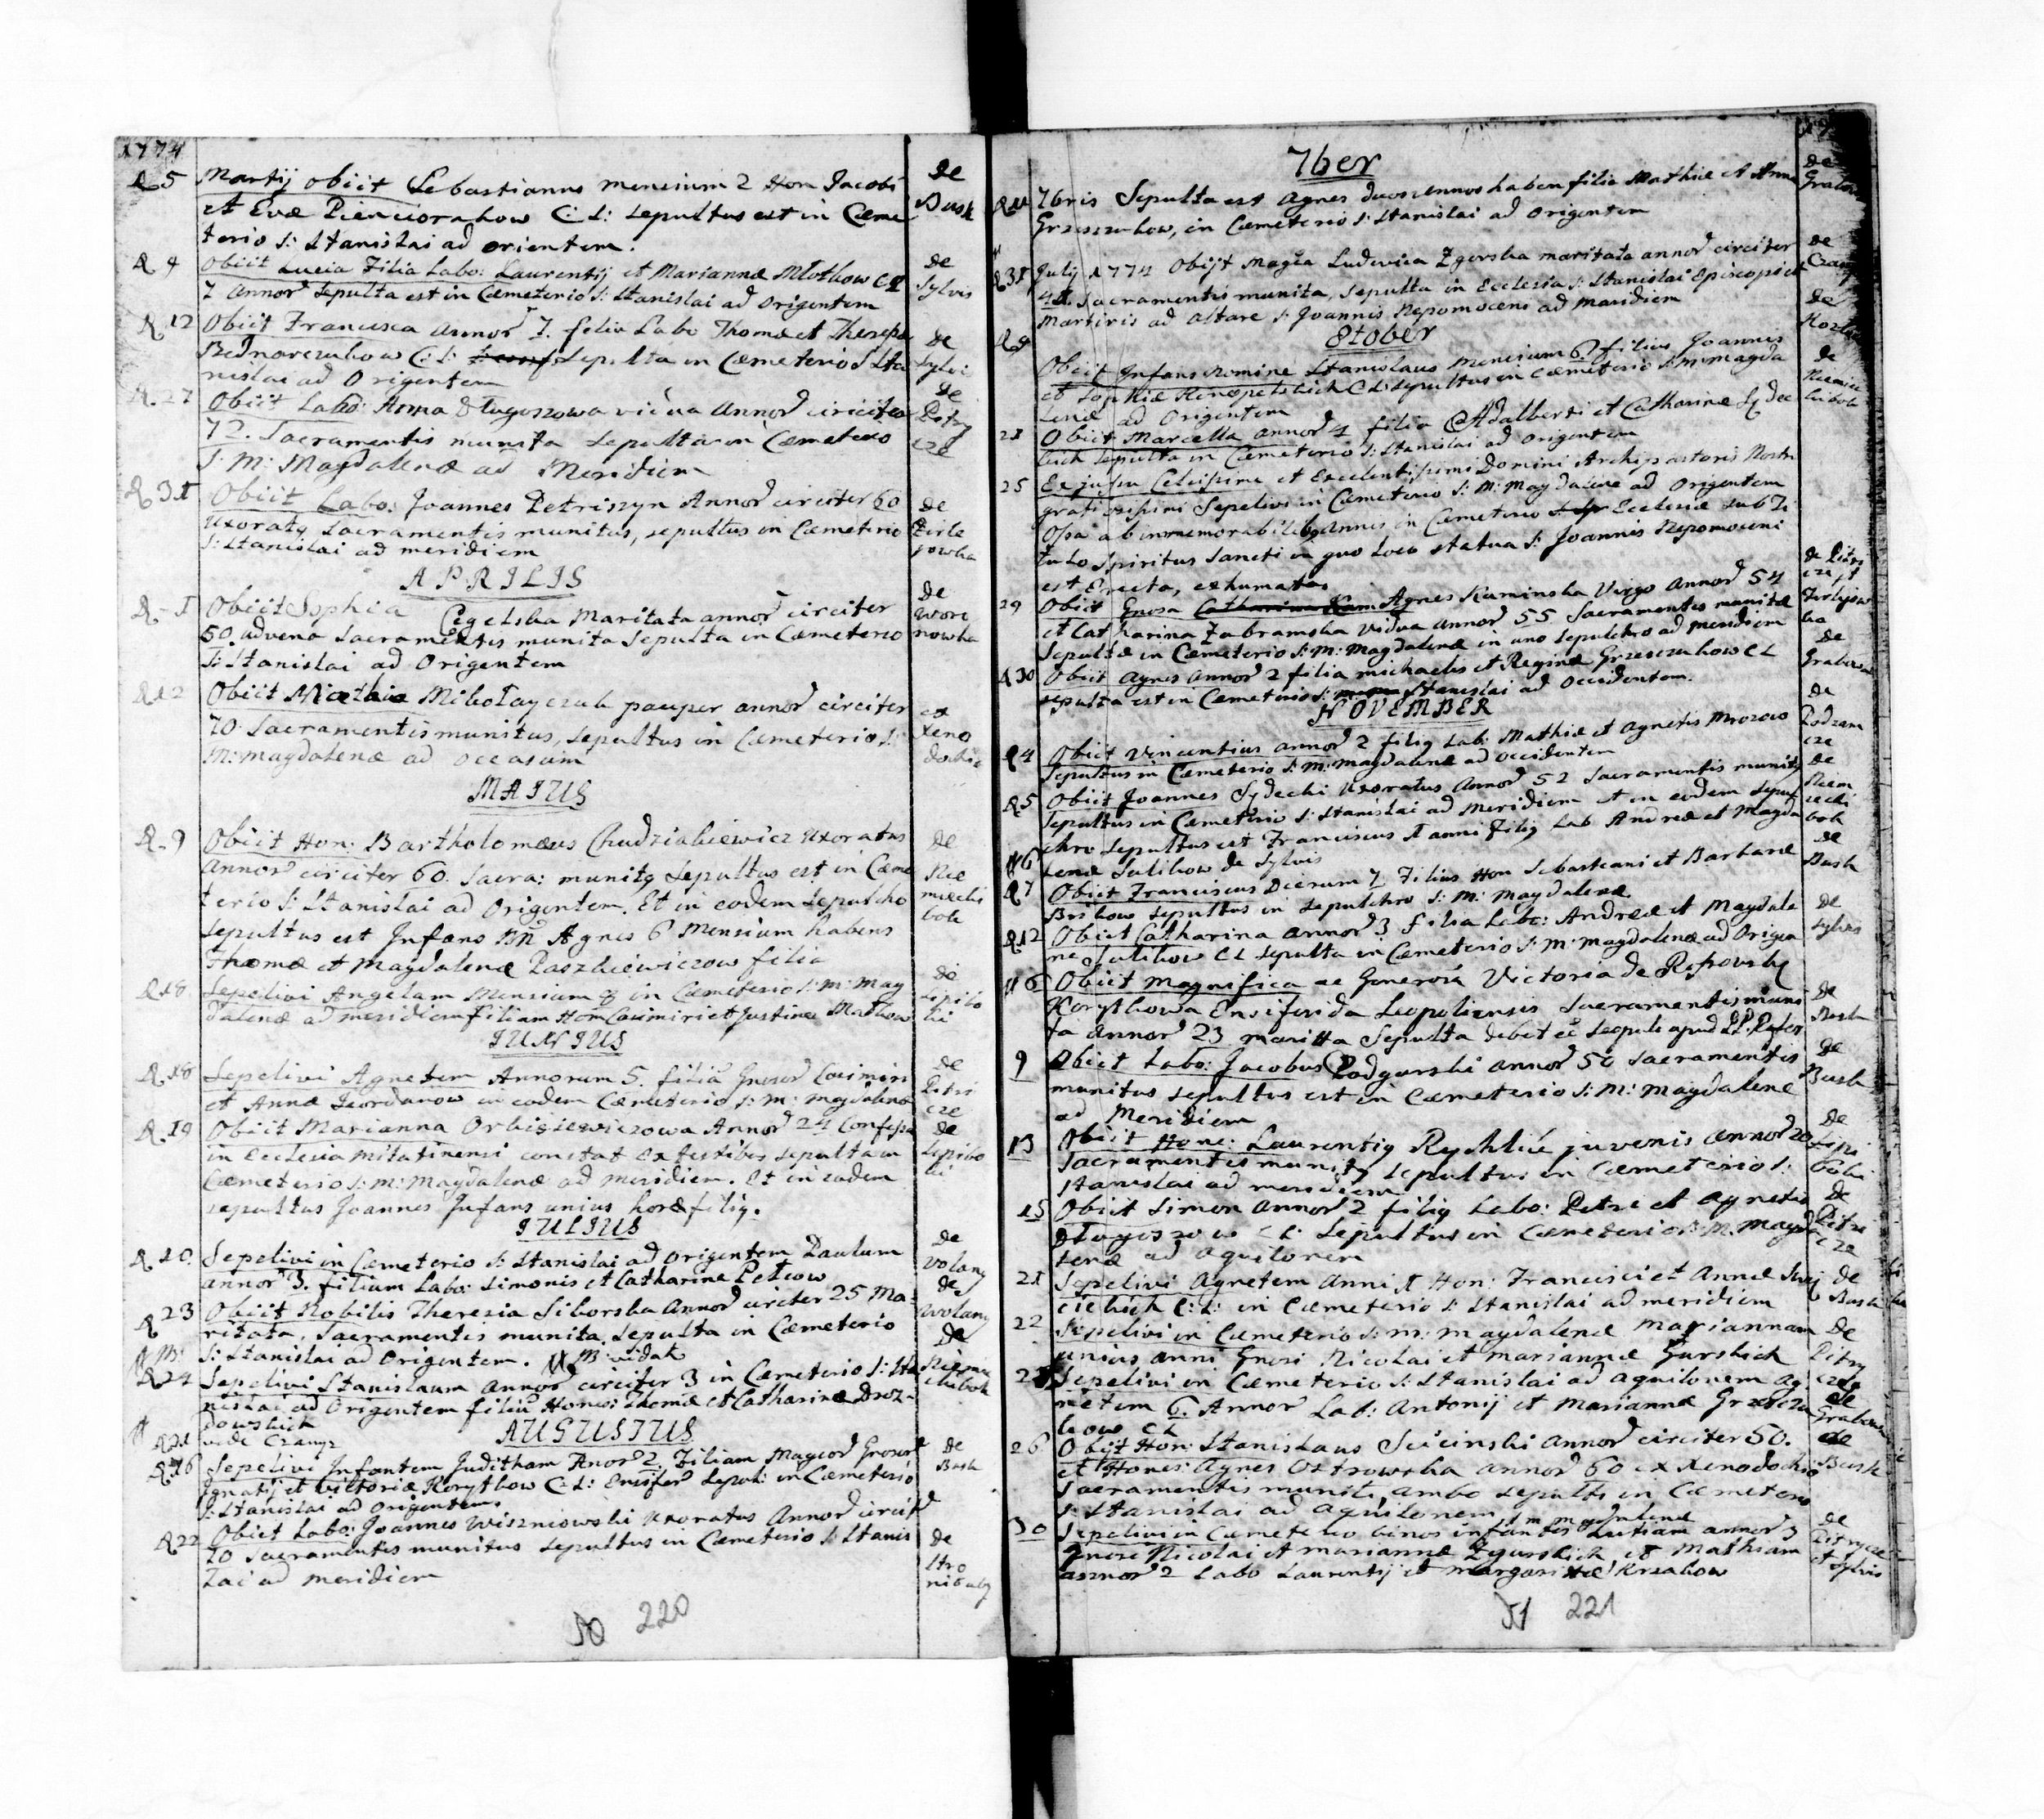 1774
R 5 Martij obiit Sebastianus mensium 2 Hon Jacobi de
et Evæ Pienciorakow C: L: sepultus est in Cæme Busk
terio S: Stanislai ad orientem.
R 4 Obiit Lucia Filia Labo: Laurentij et Mariannæ Młotkow CL de
7 Annor Sepulta est in Cæmeterio S: Stanislai ad Origentem Sylvis
R 12 Obiit Francisca annor 7. filia Labo Thomæ et Theresæ de
Bednarczukow C: L: Sepulta in Cæmeterio S Sta Sylvi
nislai ad Origentem
R. 27 Obiit Labo: Anna Długoszowa vidua Annor circiter de Petry
72. Sacramentis munita Sepulta in Cæmeterio cze
S: M: Magdalenæ ad Meridiem
R 31 Obiit Labo: Joannes Petriszyn Annor circiter 60 de
Uxoratq Sacramentis munitus, sepultus in Cæmeterio Zirle
S: Stanislai ad meridiem jowka
APRILIS
R - 1 Obiit Sophia Cegelska Maritata annor circiter de Wore
50. advena Sacramentis munita Sepulta in Cæmeterio nowka
S: Stanislai ad Origentem
R 12 Obiit Mikołayczuk pauper annor circiter ex
70. Sacramentis munitus, Sepultus in Cæmeterio S: Xeno
M: Magdalenæ ad occasum dochio
MAIUS
R. 9 Obiit Hon: Bartholomæus Chudziakiewicz Uxoratus de
Annor circiter 60. Sacra: munitq Sepultus est in Cæme Nie
terio S: Stanislai ad Origentem. Et in eodem Sepulcho miecki
Sepultus est Infans Agnes 6 Mensium habens bok
Thomæ et Magdalenæ Paszkiewiczow filia
R 18. Sepelivi Angelam Mensium 9 in Cæmeterio S: M: Mag de Lipibo
dalenæ ad meridiem filiam Hon Casimiri et Justinæ Markow ki
IUNIUS
R. 18 Sepelivi Agnetem Annorum 5. filiā Gnosor Casimiri de
et Annæ Jeordanow in eodem Cæmeterio S: M: Magdalenæ Petri cze
R. 19 Obiit Marianna Orbisiewiczowa Annor 24 Confessa de
in Ecclesia Militinensi constat ex testibus sepultam Lipibo
Cæmeterio S: M: Magdalenæ ad meridiem. Et in eadem ki
sepultus Joannes Infans unius horæ filiq.
IULIUS
R 10. Sepelivi in Cæmeterio S: Stanislai ad Origentem Paulum de
annor 3. filium Labo: Simonis et Catharinæ Petrow Volany
R 23 Obiit Nobilis Theresia Siborska Annor circiter 25 Ma: de Wolany
ritata, Sacramentis munita, Sepulta in Cæmeterio
S: Stanislai ad Origentem. NB vidat de
R 24 Sepelivi Stanislaum Annor circiter 3 in Cæmeterio S: Sta Niemie
nislai ad Origentem filiū Hones: Thomæ et Catharinæ Droz= ckibok
dowskich
vide Czanyz AUGUSTUS
R 16 Sepelivi Infantem Juditham Anor 2. Filiam Magcor Gnosor de
Ignatij et Victoriæ Korytkow C: L: Ensifer Leopol: in Cæmeterio Busk
S: Stanislai ad Origentem.
R 22 Obiet Labo: Joannes Wiszniowski uxoratus Annor circit
70 Sacramentis munitus Sepultus in Cæmeterio S: Stanis de
lai ad meridiem Stro nibaby
220
7ber
7bris Sepulta est Agnes duos annos haben filia Mathiæ et Anna de
Grzeszukow, in Cæmeterio S: Stanislai ad Origentem
R 31 Julij 1774 Obijt Magfa Ludovica Zgorska maritata annor circiter de
41. Sacramentis munita, Sepulta in Ecclesia S: Stanislai Episcopi et
Martiris ad Altare S: Joannis Nepomoceni ad Maridiem de
8tober
R 9 Obiit Infans Nomine Stanislaus Mensium 6 filius Joannis
et Sophiæ Konopelskich C L: sepultus in Cæmeterio S: M: Magda de
lenæ ad Origentem
21 Obiit Marcella annor 1 filia Adalberti et Catharinæ Sydec
kich sepulta in Cæmeterio S: Stanislai ad Origentem
25 Ex jussu Celsissimi et Excelentissimi Domini Archipastoris Nostri
gratiosissimi Sepelivi in Cæmeterio S: M: Magdalenæ ad Origentem
Ossa ab inmemorabilibq Annis in Cæmeterio Ecclesiæ sub Ti
tulo Spiritus Sancti in quo Loco statua S: Joannis Nepomoceni
est Erecta, exhumatas
29 Obiit Gnosa Agnes Kaminska Virgo Annor 54 de Petri cze et
et Catharina Zabramska Vidua annor 55 Sacramentis munitæ Zirlijow
Sepultæ in Cæmeterio S: M: Magdalenæ in uno Sepulchro ad meridiem ka
R 30 Obiit Agnes Annor 2 filia Michaelis et Reginæ Grzeszukow C L de
sepulta est in Cæmeterio S: Stanislai ad Occidentem.
NOVEMBER
R 4 Obiit Vincentius annor 2 filiq Lab: Mathiæ et Agnetis Mrozow de Podzam
Sepultus in Cæmeterio S: M: Magdalenæ ad Occidentem cze
R 5 Obiit Joannes Sydecki Uxoratus Annor 52 Sacramentis munitq de
Sepultus in Cæmeterio S: Stanislai ad Meridiem et in eodem Sepul Niem iecki
chro Sepultus est Franciscus 1 anni Filiq Lab Andreæ et Magda bok
lenæ Salikow de Sylvis de
R 7 Obiit Franciscus Dierum 7 Filius Hon Sebastiani et Barbaræ Busk
Brskow Sepultus in Sepulchro S: M: Magdalenæ
R 12 Obiit Catharina annor 3 Filia Labo: Andreæ et Magdale de
næ Salikow CL Sepulta in Cæmeterio S: M: Magdalenæ ad Origen Sylvis
Obiit Magnifica ac Generosa Victoria de
Korytkowa Ensiferida Leopoliensis Sacramentis muni de
ta Annor 23 maritta Sepulta debet eē Leopoli apud PP. Refor Busk
9 Obiit Labo: Jacobus Podgurski annor 50 Sacramentis de
munitus sepultus est in Cæmeterio S: M: Magdalenæ Busk
ad Meridiem
13 Obiit Hone: Laurentiq Rychlic juvenis Annor 20 de
Sacramentis munitq Sepultus in Cæmeterio S: Lipi
Stanislai ad meridiem boki
15 Obiit Simon Annor 2 filiq Labo: Petri et Agnetis de
Długoszow C L: Sepultus in Cæmeterio S: M. Magda Petri
lenæ ad Aquilonem cze
21 Sepelivi Agnetem Anni 1 Hon: Francisci et Annæ Swij de
cickich C: L: in Cæmeterio S: Stanislai ad meridiem Busk
22 Sepelivi in Cæmeterio S: M: Magdalenæ Mariannam de
unius anni Gnosi Nicolai et Mariannæ Gurskich Pitry
Sepelivi in Cæmeterio S: Stanislai ad Aquilonem Ag cze
netem 6. Annor Lab: Antonij et Mariannæ Grzeszu de
kow CL
26 Obijt Hon: Stanislaus Sucinski Annor circiter 50. de
et Hones: Agnes Ostrowska annor 60 ex Xenodochio Busk
Sacramentis muniti ambo Sepulti in Cæmeterio
S: Stanislai ad Aquilonem
S m magdalenæ
30 Sepelivi in Cæmeterio binos infantes Lutiam annor 3 de
Gnosi Nicolai et Mariannæ Zgurskich et Mathiam Pitrycze
annor 2 Labo Laurentij et Margaritæ Krzakow et Sylvis
221